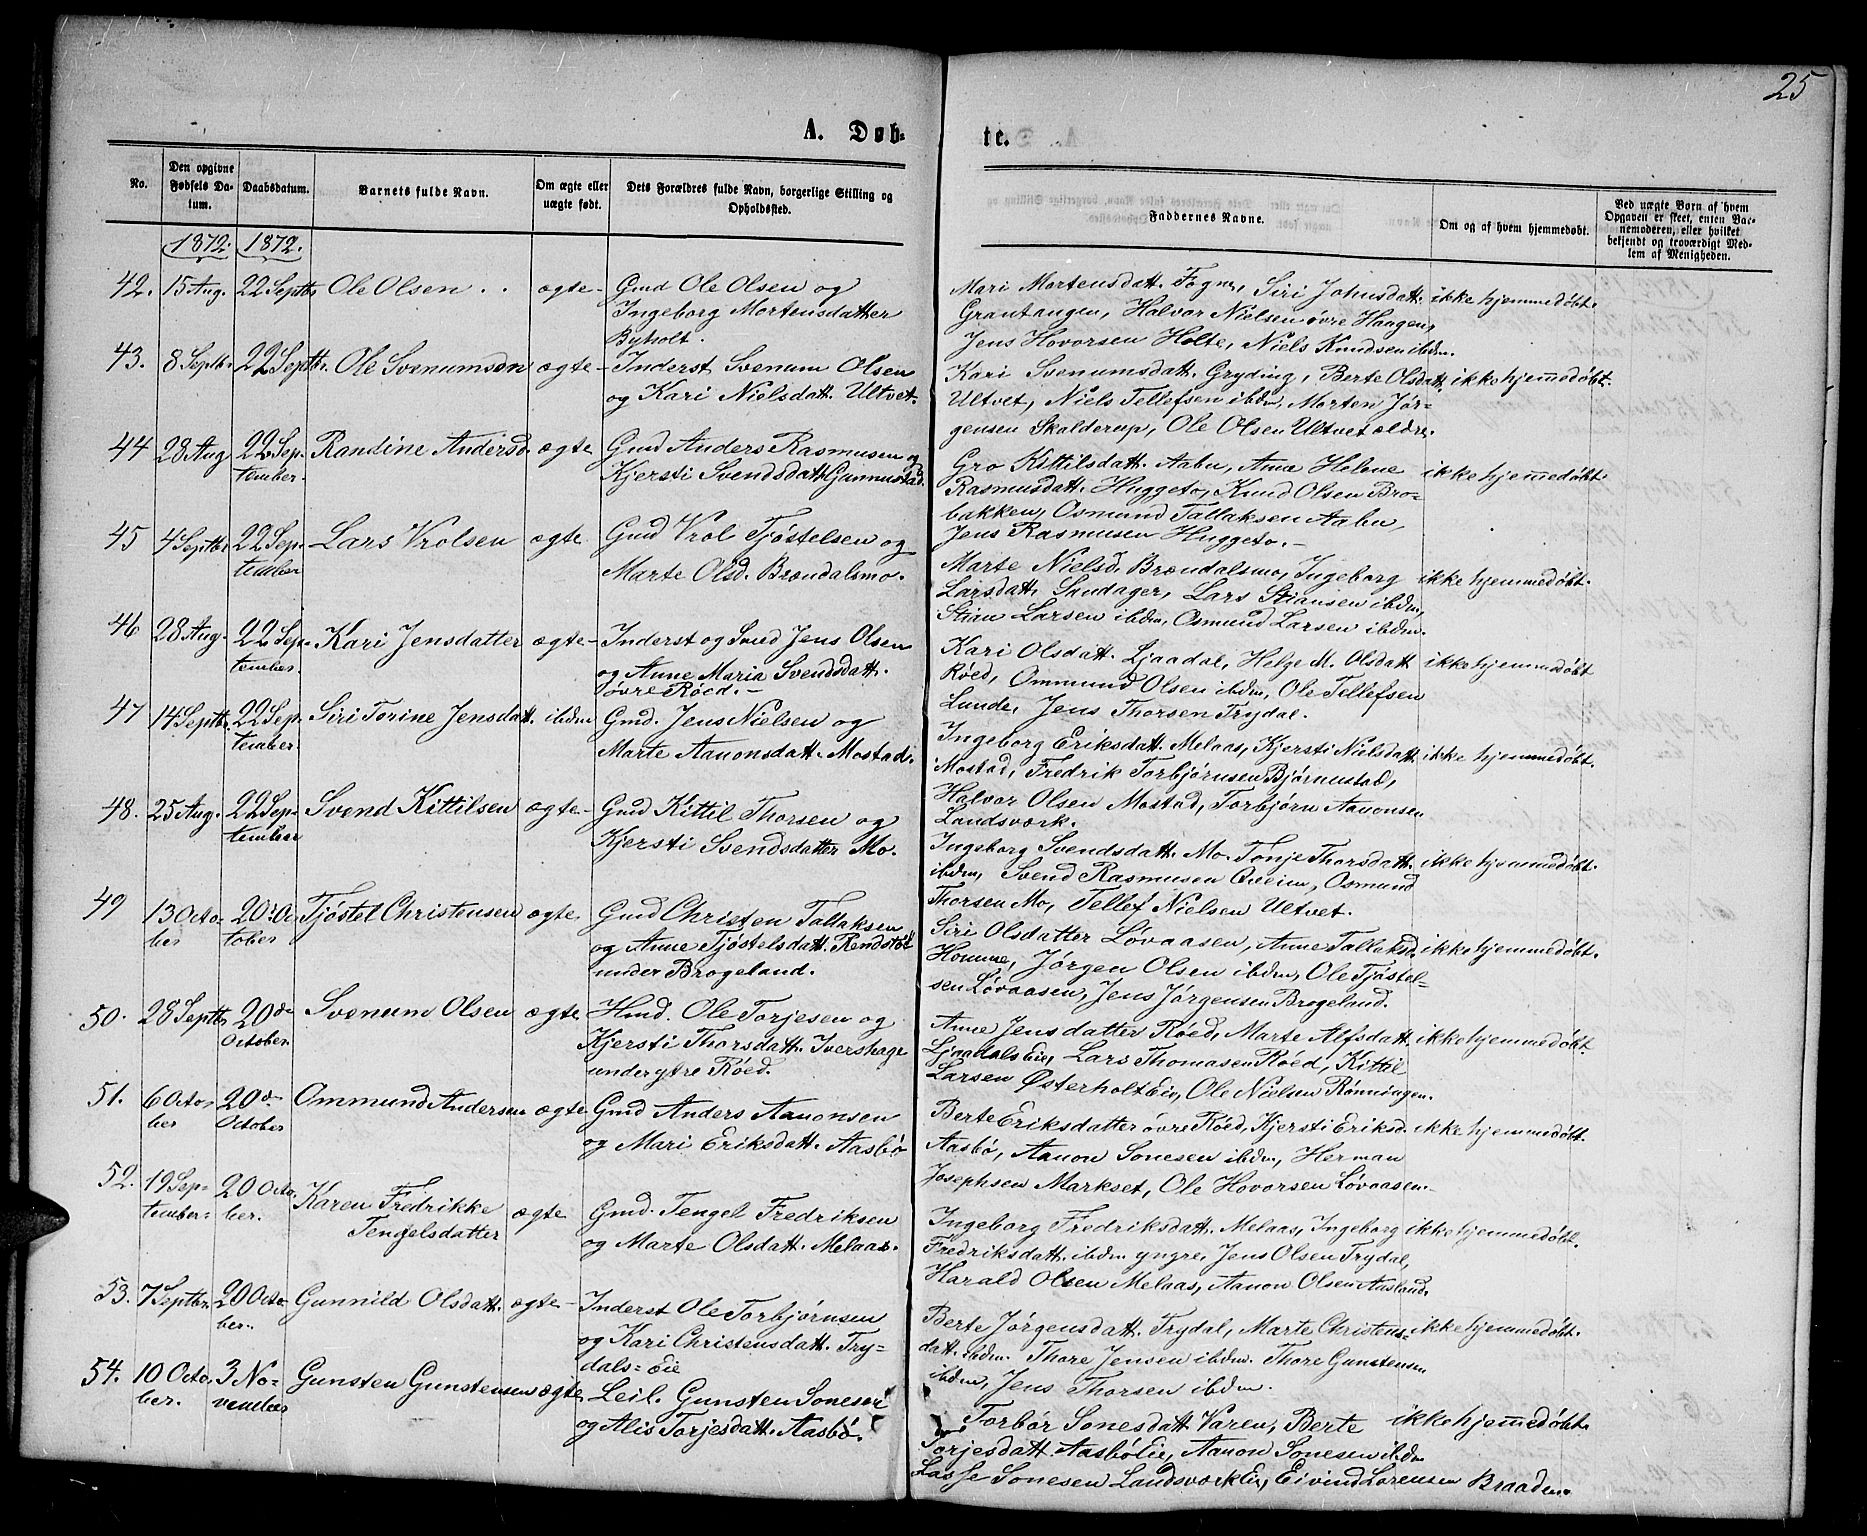 25
A. Døb-
te.
No.
Den opgivne Fødsels Da-tum.
Daabsdatum.
Barnets fulde Navn.
Om ægte eller uægte født.
Dets Forældres fulde Navn, borgerlige Stilling og Opholdssted.
Faddernes Navne.
Om og af hvem hjemmedøbt.
Ved uægte Børn af hvem Opgaven er skeet, enten Bar-nemoderen, eller hvilket bekjendt og troværdigt Med-lem af Menigheden.
1872. 1872.
42. 15 Aug. 22 Septbr Ole Olsen ægte- Gmd Ole Olsen og
Ingeborg Mortensdatter
Byholt.
Mari Mortensdatt. Fogne, Siri Johnsdatt. ikke hjemmedøbt.
Grantangen, Halvor Nielsen øvre Haagen,
Jens Hovorsen Holte, Niels Knudsen ibdm.
43. 8 Septbr. 22 Septbr. Ole Svenumsøn ægte- Inderst Svenum Olsen
og Kari Nielsdatt. Ultvet.
Kari Svenumsdatt. Gryding, Berte Olsdatt. ikke hjemmedøbt.
Ultvet, Niels Tellefsen ibdm, Morten Jør-
gensen Skalderup, Ole Olsen Ultvet ældre.
44 28 Aug 22 Sep-
tember. Randine Andersd. ægte Gmd Anders Rasmusen og
Kjersti Svendsdatt. Gunnustad.
Gro Kittilsdatt. Aabu, Anne Helene ikke hjemmedøbt.
Rasmusdatt. Huggeto, Knud Olsen Bro-
bakken, Osmund Tallaksen Aabu,
Jens Rasmusen Huggeto.-
45 4 Septbr. 22 Sep-
tember Lars Vrolsen ægte Gmd Vrol Tjøstelsen og
Marte Olsd. Brøndalsmo.
Marte Nielsd. Brøndalsmo, Ingeborg ikke hjemmedøbt.
Larsdatt. Sundager, Lars Stiansen ibdm,
Stian Larsen ibdm, Osmund Larsen ibdm.
46 28 Aug. 22 Sep-
tember. Kari Jensdatter ægte- Inderst og Smed Jens Olsen
og Anne Maria Svendsdatt.
øvre Röed.-
Kari Olsdatt. Ljaadal, Helge M. Olsdatt ikke hjemmedøbt
Röed, Ommund Olsen ibdm, Ole Tellefsen
Lunde, Jens Thorsen Trydal.
47 14 Septbr. 22 Sep-
tember. Siri Torine Jensdatt. ibdm Gmd. Jens Nielsen og
Marte Aanonsdatt. Mostad.
Ingeborg Eriksdatt. Melaas, Kjersti Nielsdatt. ikke hjemmedøbt.
Mostad, Fredrik Torbjørnsen Bjørnustad,
Halvor Olsen Mostad, Torbjørn Aanonsen
Landsværk.
48. 25 Aug. 22 Sep-
tember Svend Kittilsen ægte- Gmd Kittil Thorsen og
Kjersti Svendsdatter Mo.
Ingeborg Svendsdatt. Mo. Tonje Thorsdatt. ikke hjemmedøbt.
ibdm, Svend Rasmusen Qveim, Osmund
Thorsen Mo, Tellef Nielsen Ultvet.
49 13 Octo-
ber 20 Oc
tober Tjøstel Christensen ægte Gmd Christen Tallaksen
og Anne Tjøstelsdatt. Rendstöl
under Brogeland.
Siri Olsdatter Løvaasen, Anne Tallaksd. ikke hjemmedøbt.
Homme, Jørgen Olsen ibdm, Ole Tjøstel-
sen Løvaasen, Jens Jørgensen Brogeland.
50. 28 Septbr. 20de
October. Svenum Olsen ægte Hmd. Ole Torjesen og
Kjersti Thorsdatt. Ivershage
under ytre Röed.
Anne Jensdatter Röed, Marte Alfsdatt. ikke hjemmedøbt.
Ljaadals Eie, Lars Thomasen Röed, Kittil
Larsen Østerholt Eie, Ole Nielsen Rönningen.
51. 6 Octo-
ber 20de
October Ommund Andersen ægte Gmd Anders Aanonsen
og Mari Eriksdatt. Aasbø
Berte Eriksdatter øvre Röed, Kjersti Eriksd. ikke hjemmedøbt.
Aasbø, Aanon Sonesen ibdm, Herman
Josephsen Markset, Ole Hovorsen Løvaasen.
52. 19 Sep-
tember. 20 Octo.
ber. Karen Fredrikke
Tengelsdatter ægte Gmd. Tengel Fredriksen
og Marte Olsdatt. Melaas.
Ingeborg Fredriksdatt. Melaas, Ingeborg ikke hjemmedøbt.
Fredriksdatt. ibdm yngre, Jens Olsen Trydal,
Harald Olsen Melaas, Aanon Olsen Aasland.
53. 7 Septbr. 20 Octo-
ber. Gunnild Olsdatt. ægte- Inderst Ole Torbjørnsen
og Kari Christensdatt. Try=
dals=eie
Berte Jørgensdatt. Trydal, Marte Christens= ikke hjemmedøbt.
datt. ibdm. Thore Jensen ibdm. Thore Gunstensen
ibdm, Jens Thorsen ibdm.
54. 10 Octo.
ber. 3 No=
vember Gunsten Gunstensen ægte Leil. Gunsten Sonesen
og Alis Torjesdatt. Aasbø.
Torbør Sonesdatt. Varen, Berte ikke hjemmedøbt.
Torjesdatt. Aasbø Eie, Aanon Sonesen ibdm
Lasse Sonesen Landsværk Eie, Eivind Lorensen Braaden.